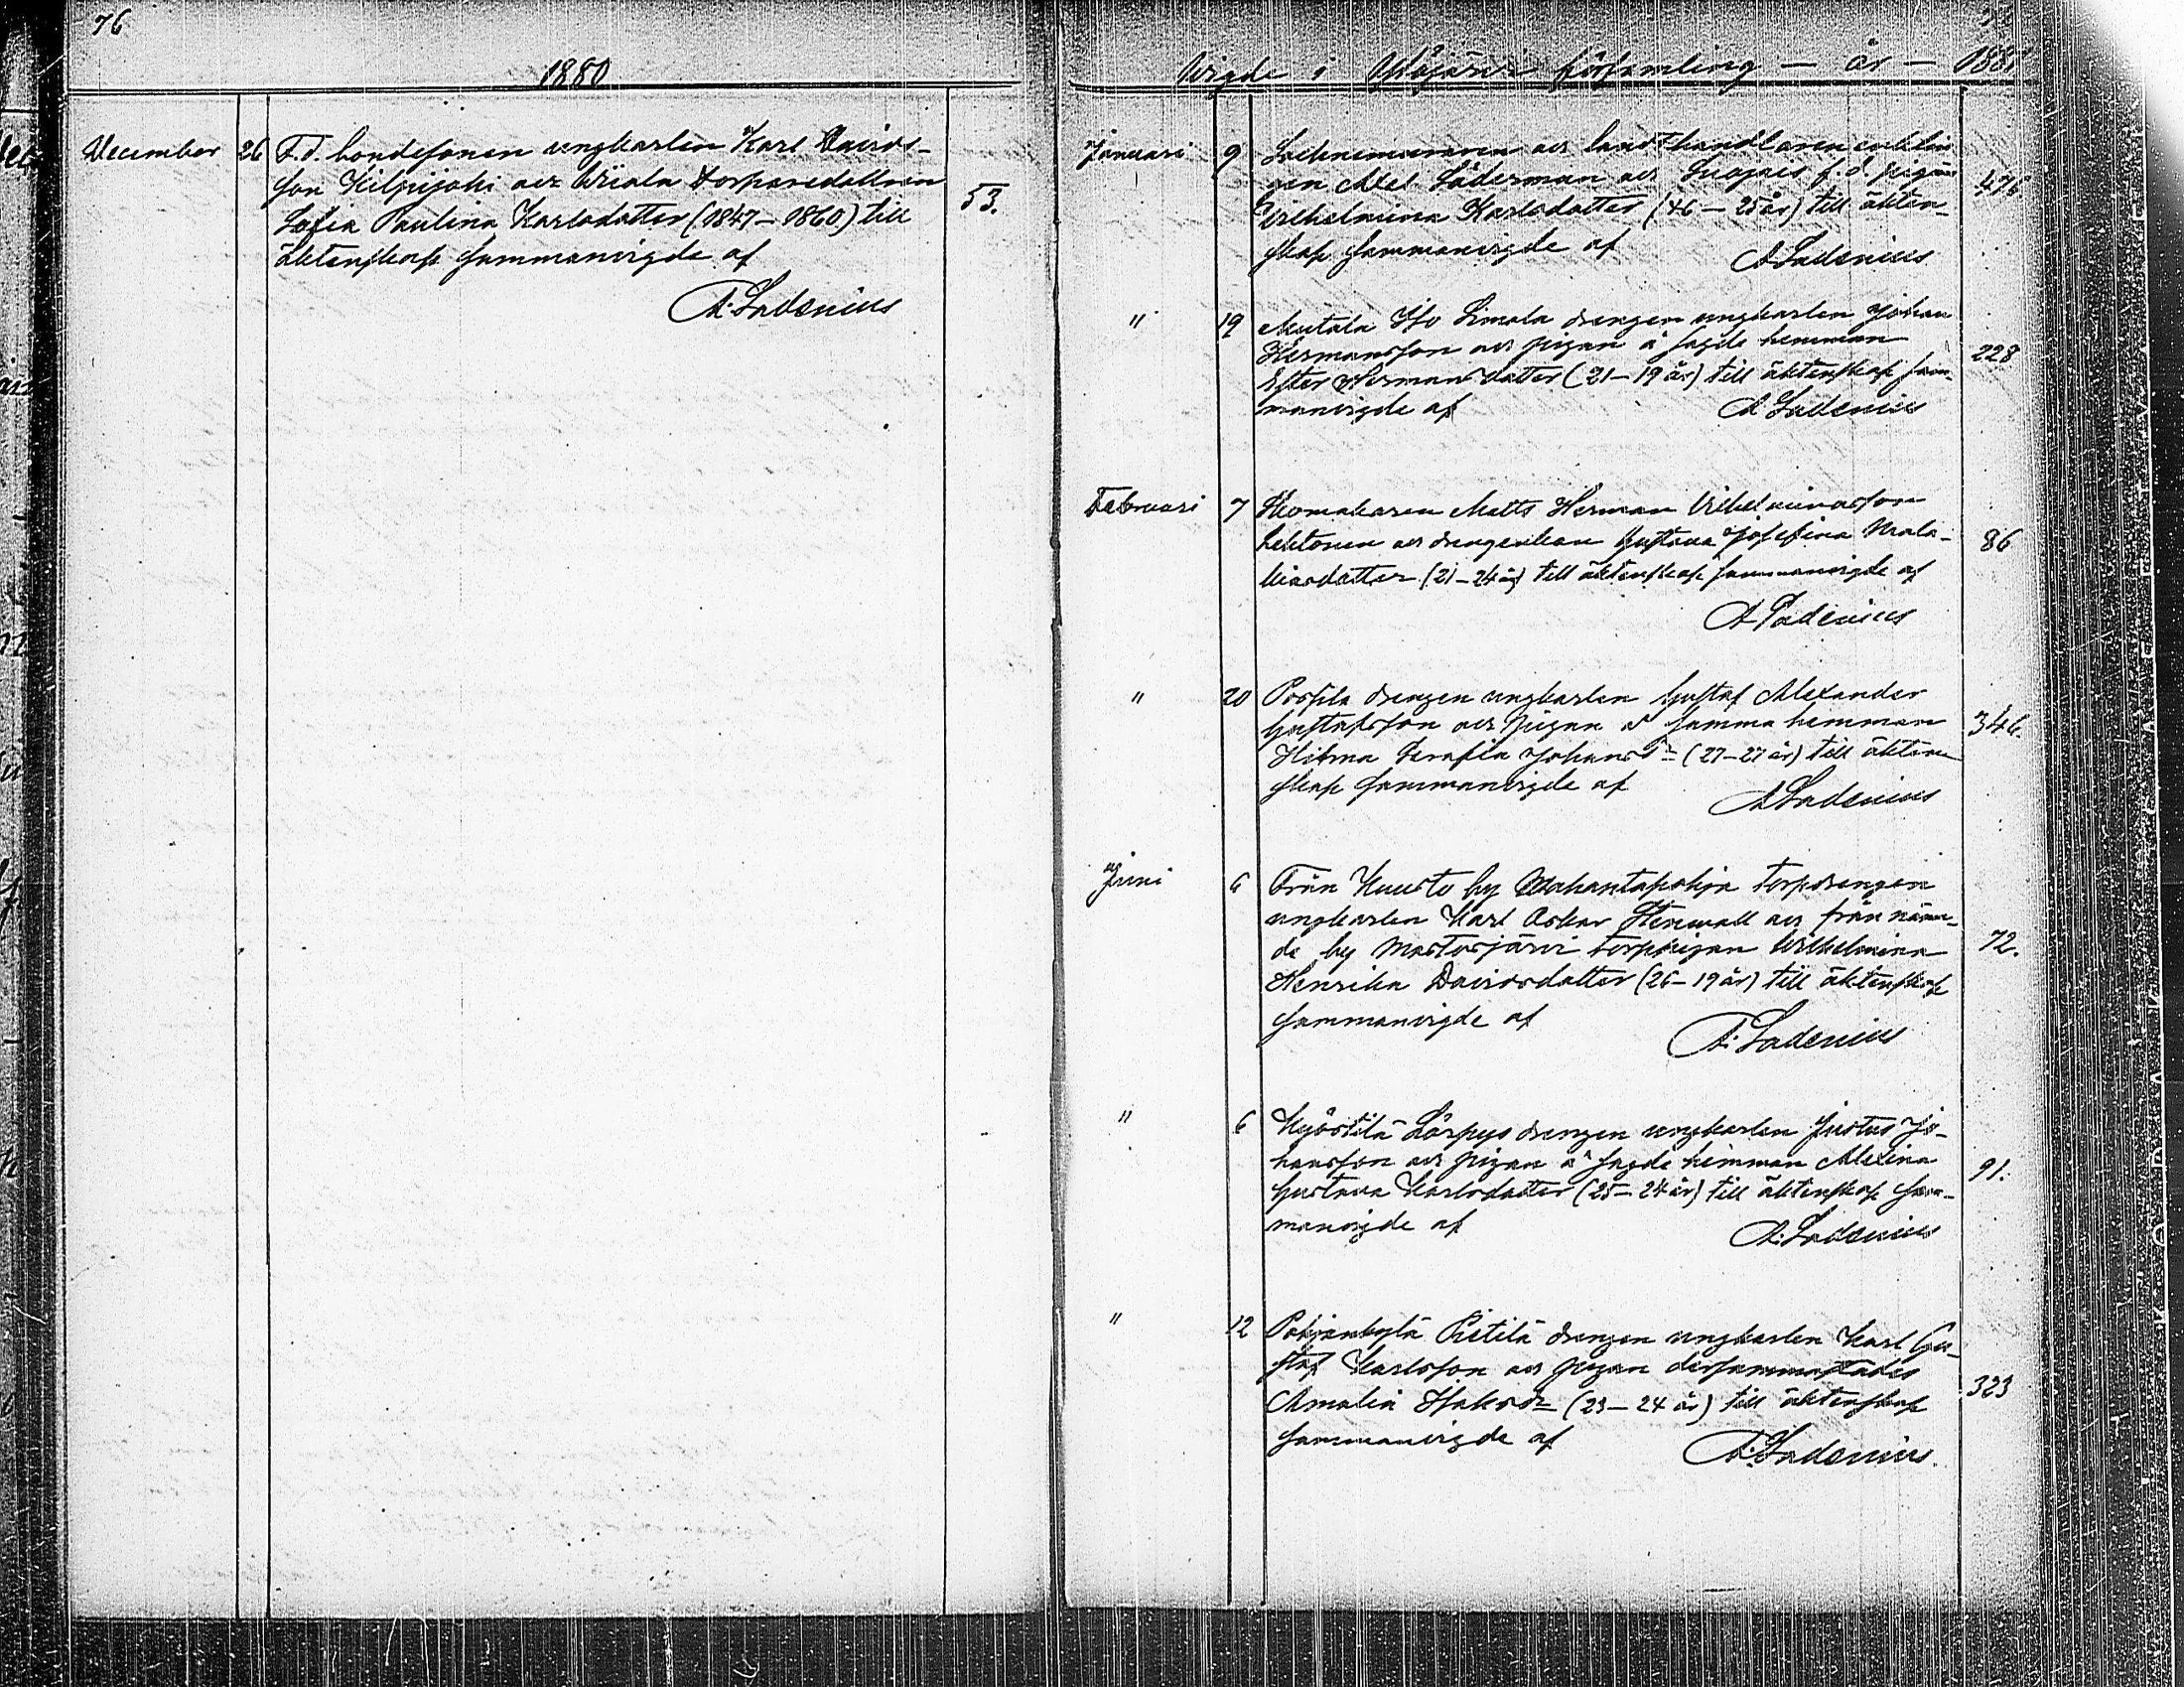 76
1880
December 26 F.d. bondesonen ungkarlen Karl Davids-
son Kilpijoki och Wiala torparedottren
Sofia Paulina Karlsdotter (1847–1860) till
äktenskap sammanvigde af
53.
A. Ladenius
Wigde i församling — år — 1881
Januari 9 och landthandlaren enklin-
gen Axel Söderman och f.d. pigan
Wilhelmina Karlsdotter (46–25 år) till äkten-
skap sammanvigde af
476
A Ladenius
" 19 Mutala Iso Simola drengen ungkarlen Johan
Hermansson och pigan å sagde hemman
Ester Hermansdotter (21–19 år) till äktenskap sam-
manvigde af
228
A Ladenius
Februari 7 Skomakaren Matts Herman Vilhelminasson
Lehtonen och drengenkan Gustava Josefina Mala-
kiasdotter (21–24 år) till äktenskap sammanvigde af
86
A Ladenius
" 20 Porsila drengen ungkarlen Gustaf Alexander
Gustafsson och pigan å samma hemman
Hilma Serafia Johansdr (27–27 år) till äkten-
skap sammanvigde af
346.
A Ladenius
Juni 6 Från Kuusto by torpdrengen
ungkarlen Karl Oskar Stenwall och från nämn-
de by Mastosjärvi torppigan Wilhelmina
Henrika Davidsdotter (26–19 år) till äktenskap
sammanvigde af
72.
A. Ladenius
" 6 Kyöstilä Lörpys drengen ungkarlen Justus Jo-
hansson och pigan å sagde hemman Alexina
Gustava Karlsdotter (25–24 år) till äktenskap sam-
manvigde af
91.
A. Ladenius
" 12 Pohjankylä Pietilä drengen ungkarlen Karl Gu-
staf Karlsson och pigan dersammastädes
Amalia Isaksdr (23–24 år) till äktenskap
sammanvigde af
323
A. Ladenius.